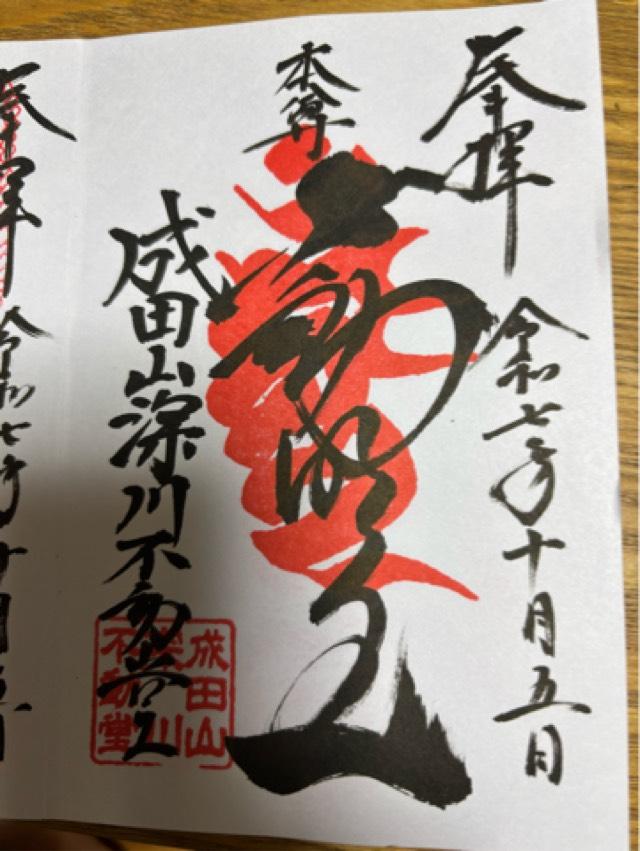 奉拝
令和七年十月五日
本尊
不動明王
成田山深川不動堂
成田山
深川
不動堂
奉拝
令和七年十月五日